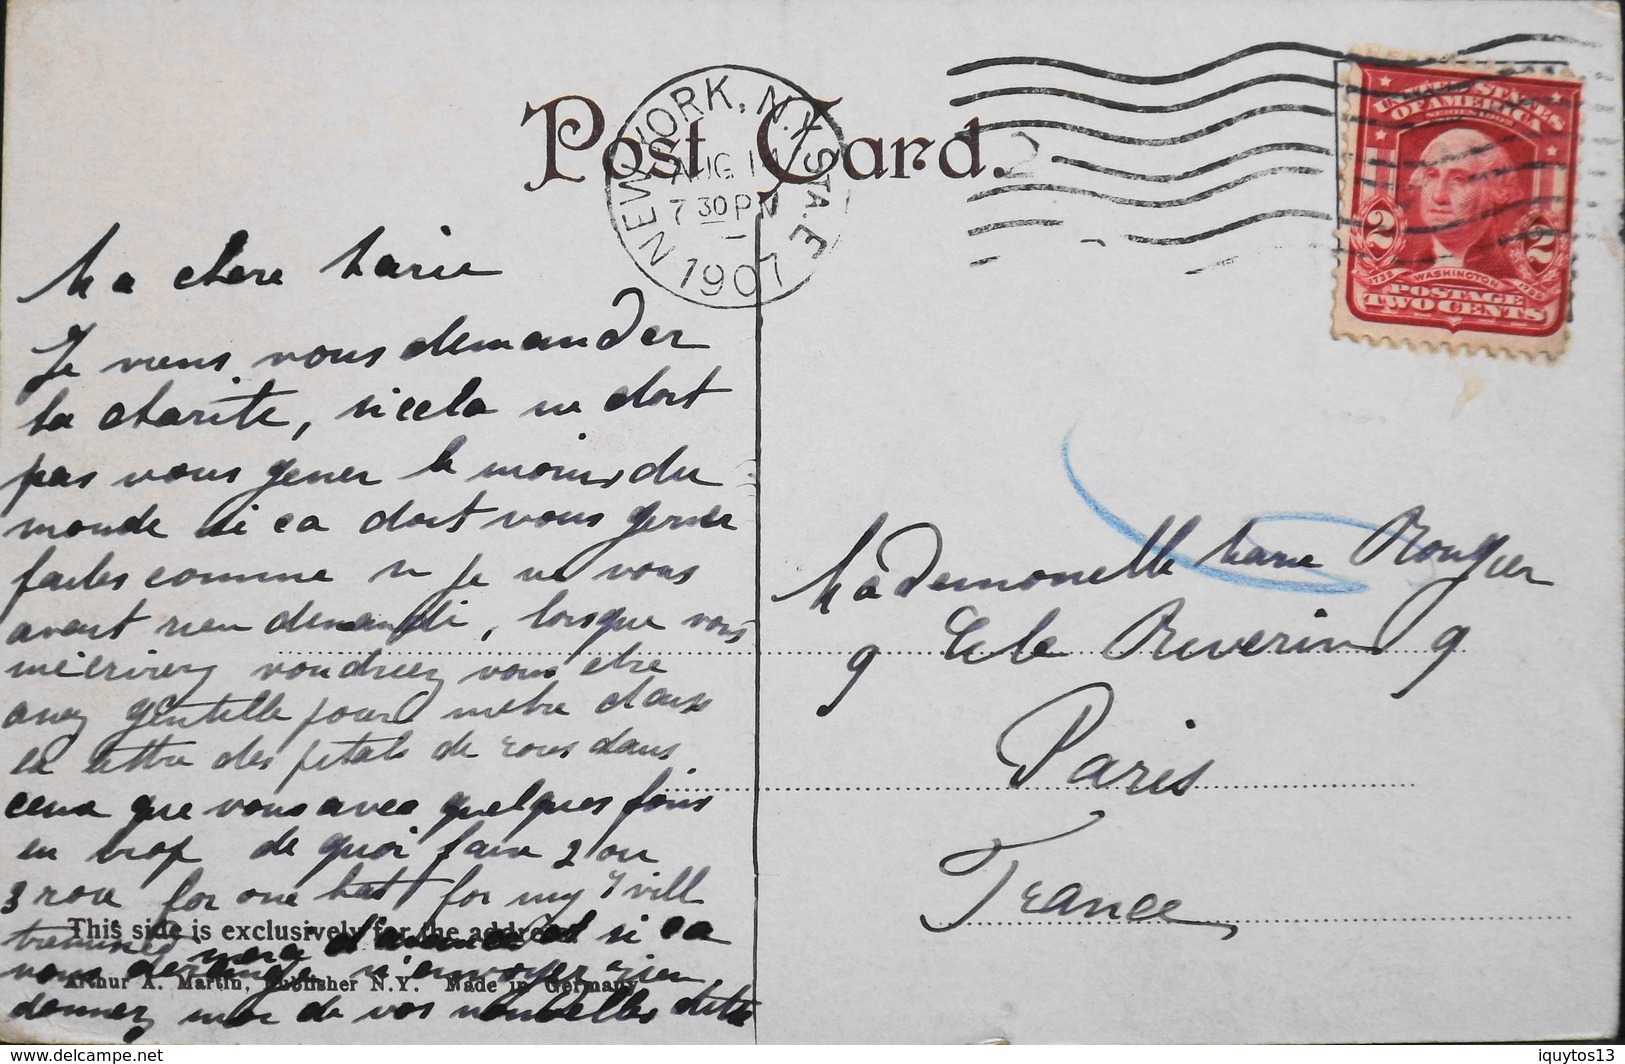 Post Card.
NEW YORK, N.Y. STA. E
AUG 1
7 30 PM
1
1907
UNITED STATES
OF AMERICA
SERIES 1902
2 2
1732 WASHINGTON 1799
POSTAGE
TWO CENTS
Ma chere Marie
Je viens vous demander
la charite, si cela ne doit
pas vous gener le moins du
monde si ca doit vous gener
faites comme si je ne vous
avait rien demandé, lorsque vous
m'écrirez voudriez vous etre
assez gentille pour metre dans
la lettre des petals de roses dans
ceux que vous avez quelques fois
en trop de quoi faire 2 ou
3 rose for one hat for my I will
trimmed si ca
vous derange n'envoyer rien
donnez moi de vos nouvelles
This side is exclusively for the address.
Arthur A. Martin, Publisher N.Y. Made in Germany
Mademoiselle Marie Rougier
9 Cité Riverin 9
Paris
France
delcampe.net
iquytos13